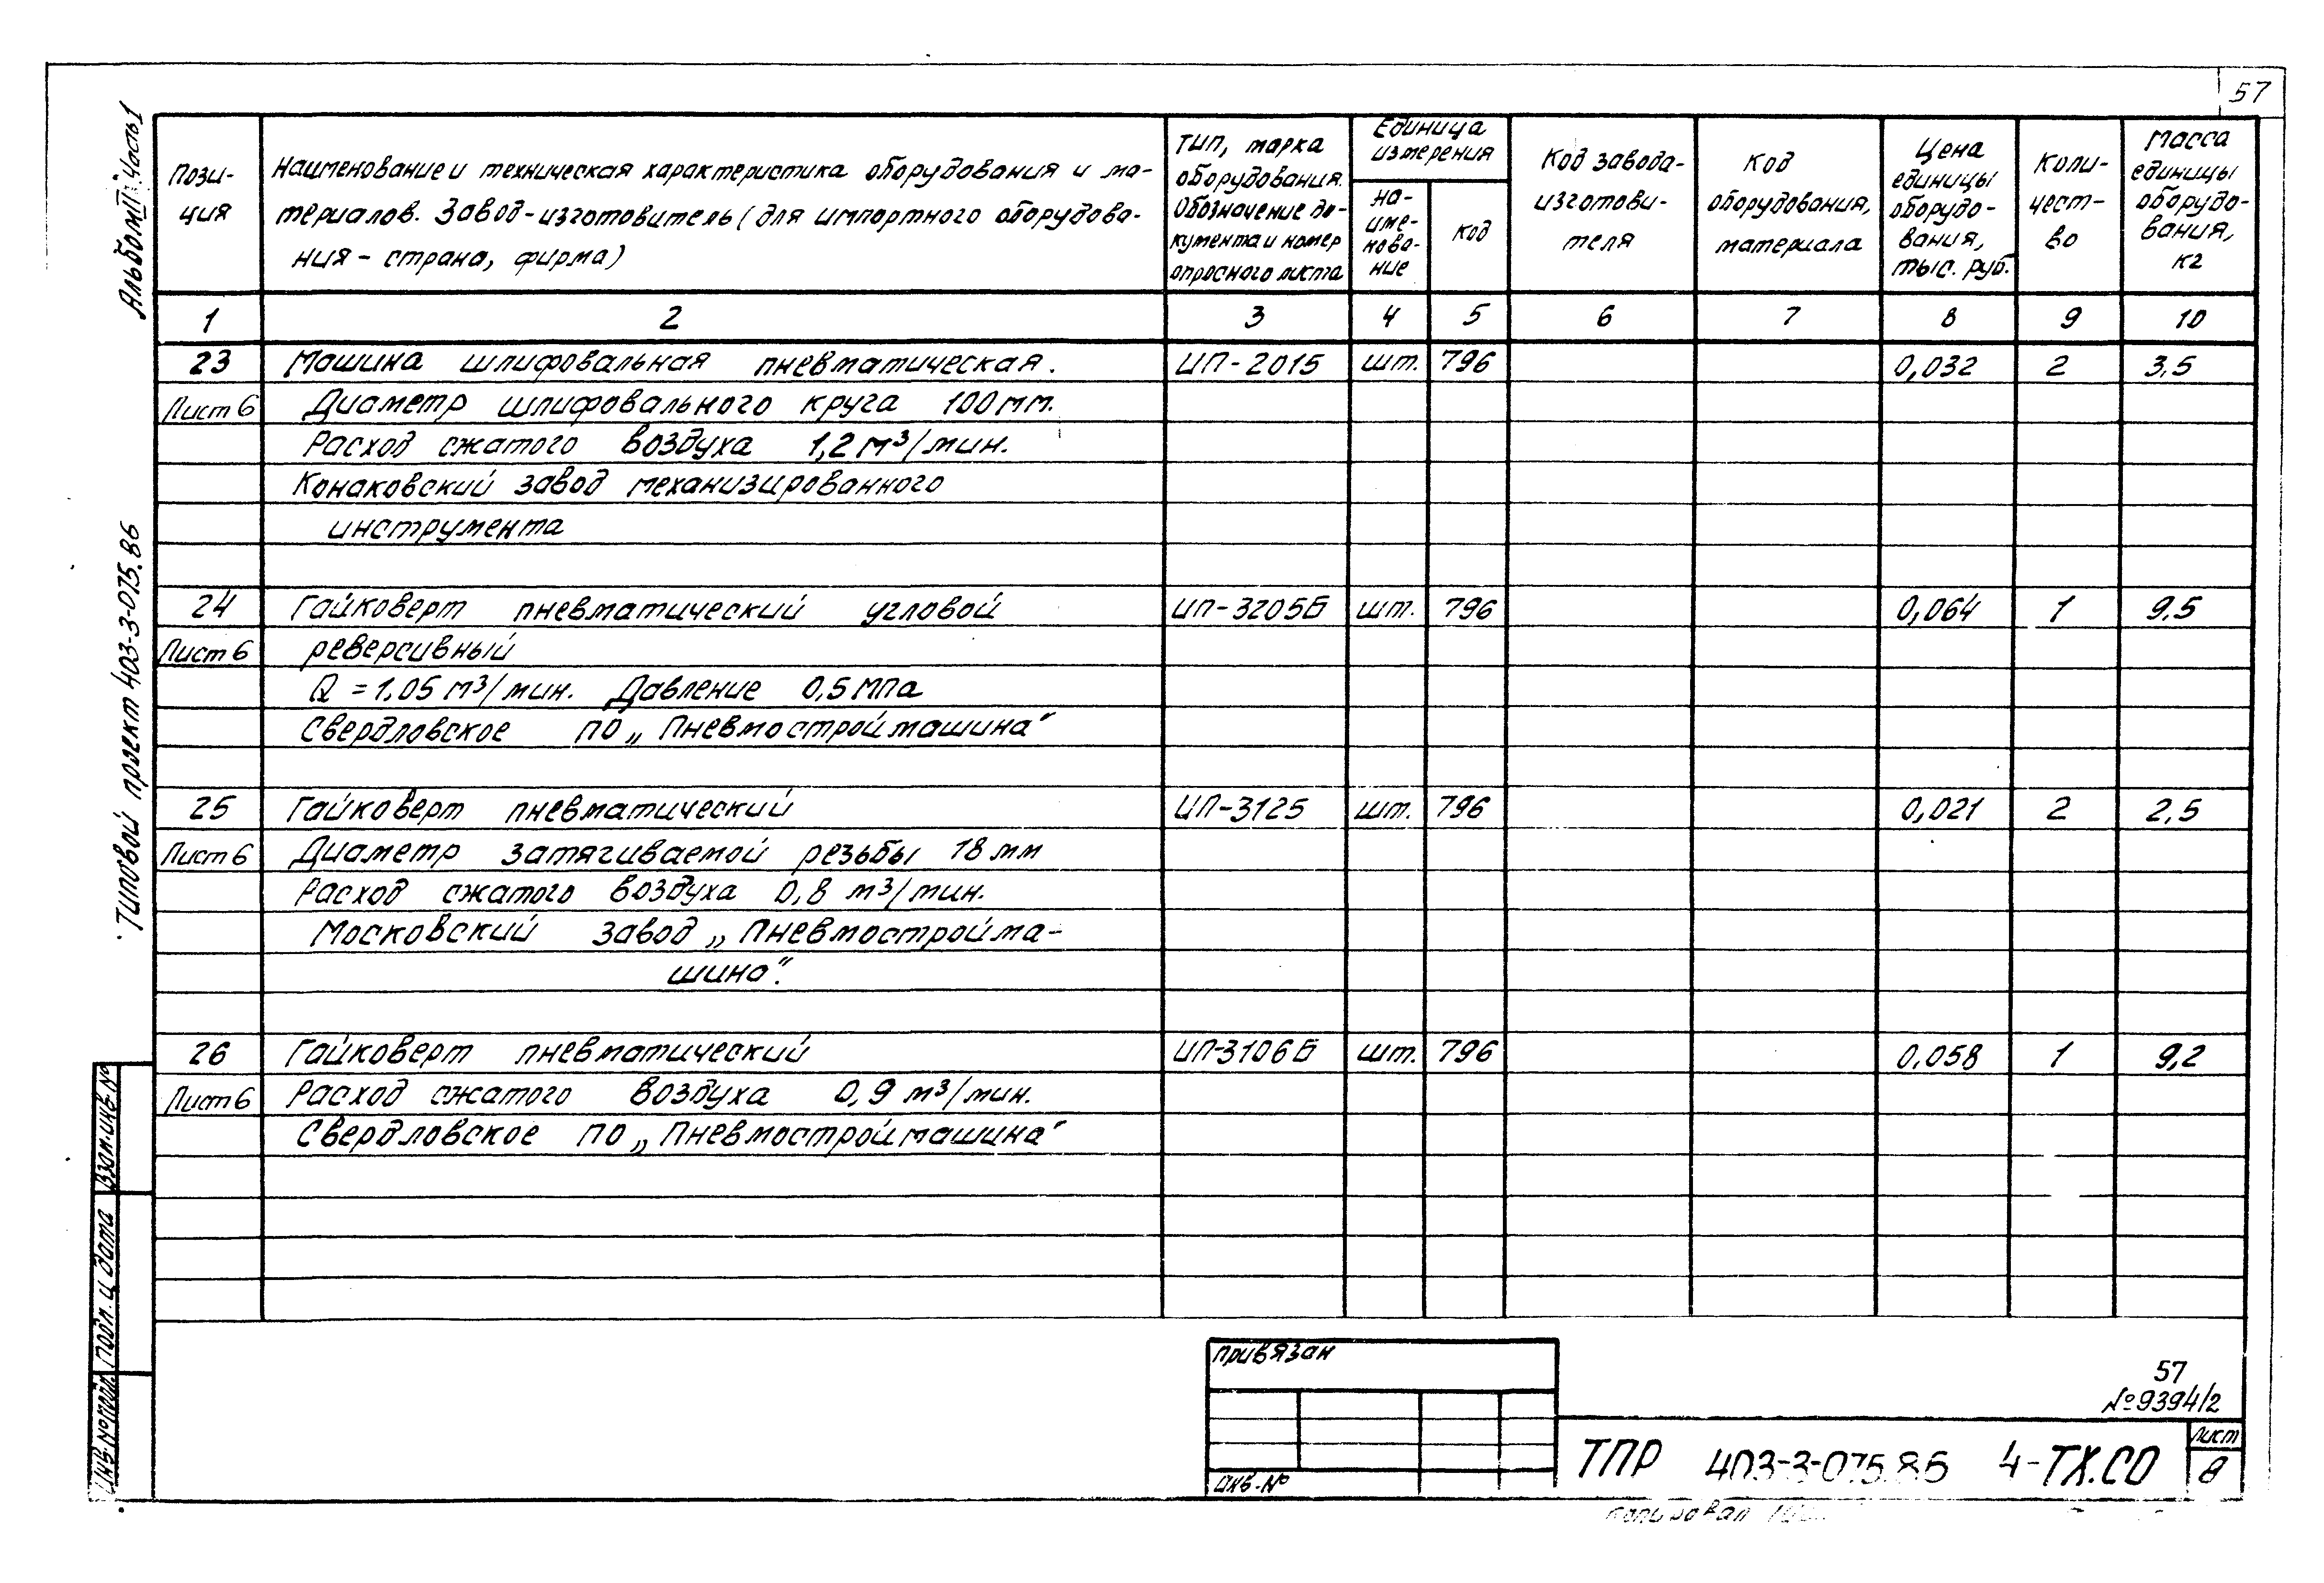 57
Альбом III Часть I
Типовой проект 403-3-075.86
Взам.инв.№
Подп. и дата
Инв.№подл.
Пози-
ция
Наименование и техническая характеристика оборудования и ма-
териалов. Завод-изготовитель (для импортного оборудова-
ния - страна, фирма)
Тип, марка
оборудования.
Обозначение до-
кумента и номер
опросного листа
Единица
измерения
на-
име-
нова-
ние
код
Код завода-
изготови-
теля
Код
оборудования,
материала
Цена
единицы
оборудо-
вания,
тыс. руб.
Коли-
чест-
во
Масса
единицы
оборудо-
вания,
кг
1 2 3 4 5 6 7 8 9 10
23 Машина шлифовальная пневматическая. ИП-2015 шт. 796 0,032 2 3,5
Лист 6 Диаметр шлифовального круга 100 мм.
Расход сжатого воздуха 1,2 м³/мин.
Конаковский завод механизированного
инструмента
24 Гайковерт пневматический угловой ИП-3205Б шт. 796 0,064 1 9,5
Лист 6 реверсивный
Q = 1,05 м³/мин. Давление 0,5 МПа
Свердловское ПО „Пневмостроймашина"
25 Гайковерт пневматический ИП-3125 шт. 796 0,021 2 2,5
Лист 6 Диаметр затягиваемой резьбы 18 мм
Расход сжатого воздуха 0,8 м³/мин.
Московский завод „Пневмостройма-
шина".
26 Гайковерт пневматический ИП-3106Б шт. 796 0,058 1 9,2
Лист 6 Расход сжатого воздуха 0,9 м³/мин.
Свердловское ПО „Пневмостроймашина"
Привязан
Инв.№
57
№9394/2
ТПР 403-3-075.86 4-ТХ.СО
Лист
8
Копировал